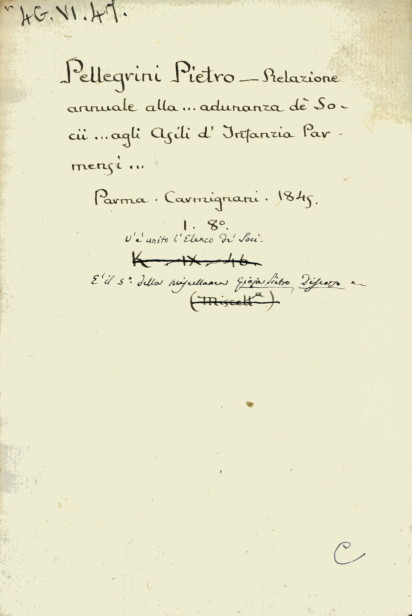 4G.VI.47.
Pellegrini Pietro — Relazione
annuale alla ... adunanza de' So-
cii ... agli Asili d' Infanzia Par-
mensi ...
Parma . Carmignani . 1845.
1. 8º.
V'è unito l'Elenco de' Soci.
K. IX. 46.
E' il 5º. della miscellanea Gioja Pietro, Discorso
(Miscellª)
C